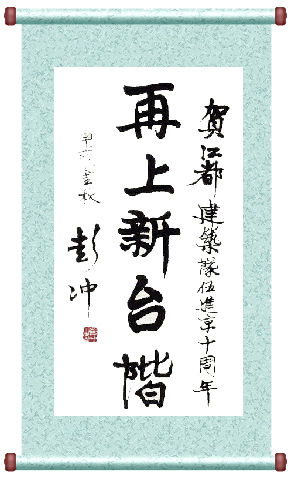 賀江都建築隊伍進京十周年
再上新台階
甲戌金秋
彭冲